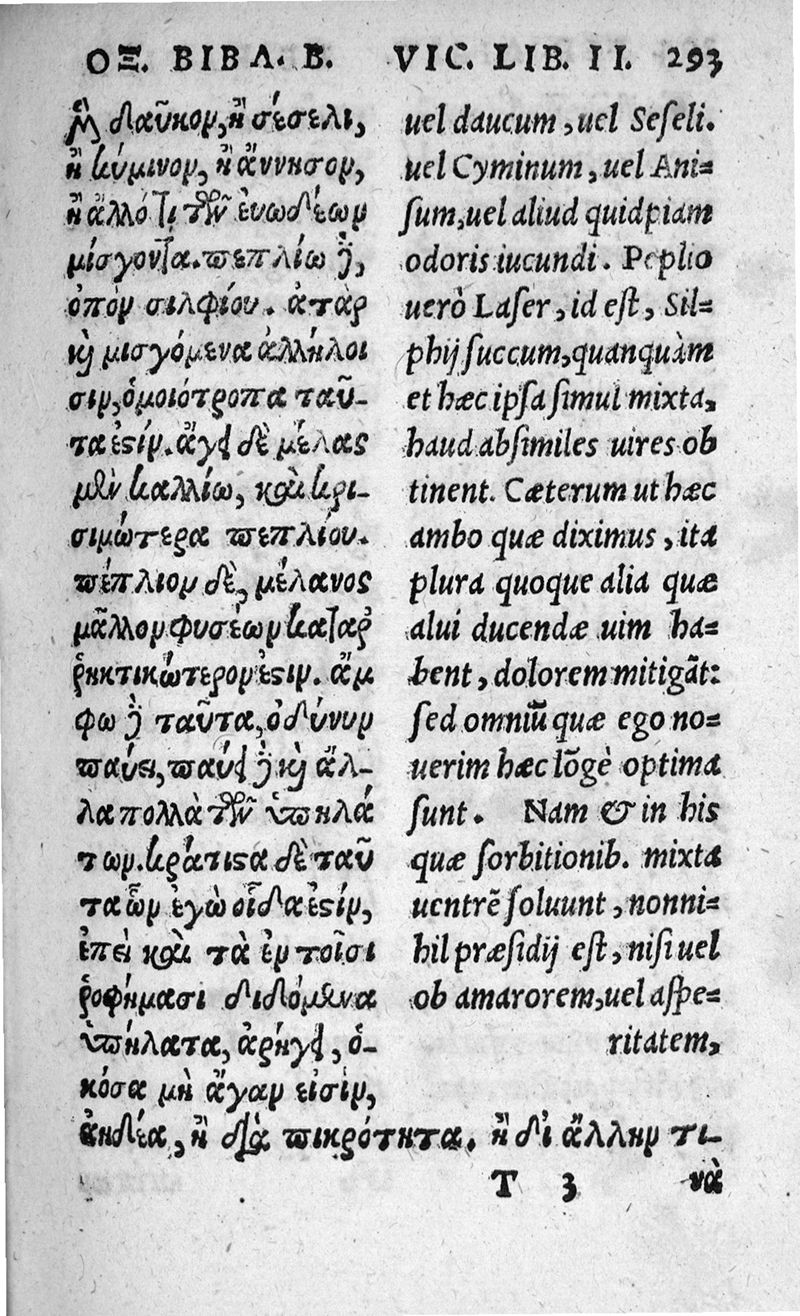 ΟΞ. ΒΙΒΛ. Β. VIC. LIB. II. 293
ἢ δαῦκον, ἢ σέσελι,
ἢ κύμινον, ἢ ἄννησον,
ἢ ἄλλό τι τῶν εὐωδέων
μίσγοντα. πεπλίῳ δὲ,
ὀπὸν σιλφίου. ἀτὰρ
καὶ μισγόμενα ἀλλήλοι
σιν, ὁμοιότροπα ταῦ-
τα ἐςίν. ἄγει δὲ μέλας
μὲν καλλίω, καὶ κρι-
σιμώτερα πεπλίου.
πέπλιον δὲ, μέλανος
μᾶλλον φυσέων καταῤ
ῥηκτικώτερον ἐςιν. ἄμ
φω δὲ ταῦτα, ὀδύνην
παύει, παύει δὲ καὶ ἄλ-
λα πολλὰ τῶν ὑπηλά
των. κράτιςα δὲ ταῦ
τα ὧν ἐγὼ οἶδα ἐςίν,
ἐπεὶ καὶ τὰ ἐν τοῖσι
ῥοφήμασι διδόμενα
ὑπήλατα, ἀρήγει, ὁ-
κόσα μὴ ἄγαν εἰσὶν,
ἀηδέα, ἢ διὰ πικρότητα. ἢ δι ἄλλην τι-
uel daucum, uel Seſeli.
uel Cyminum, uel Ani=
ſum, uel aliud quidpiam
odoris iucundi. Peplio
uerò Laſer, id eſt, Sil=
phij ſuccum, quanquàm
et hæc ipſa ſimul mixta,
haud abſimiles uires ob
tinent. Cæterum ut hæc
ambo quæ diximus, ita
plura quoque alia quæ
alui ducendæ uim ha=
bent, dolorem mitigãt:
ſed omniũ quæ ego no=
uerim hæc lõgè optima
ſunt. Nam & in his
quæ ſorbitionib. mixta
uentrẽ ſoluunt, nonni=
hil præſidij eſt, niſi uel
ob amarorem, uel aſpe=
ritatem,
T 3 νὰ